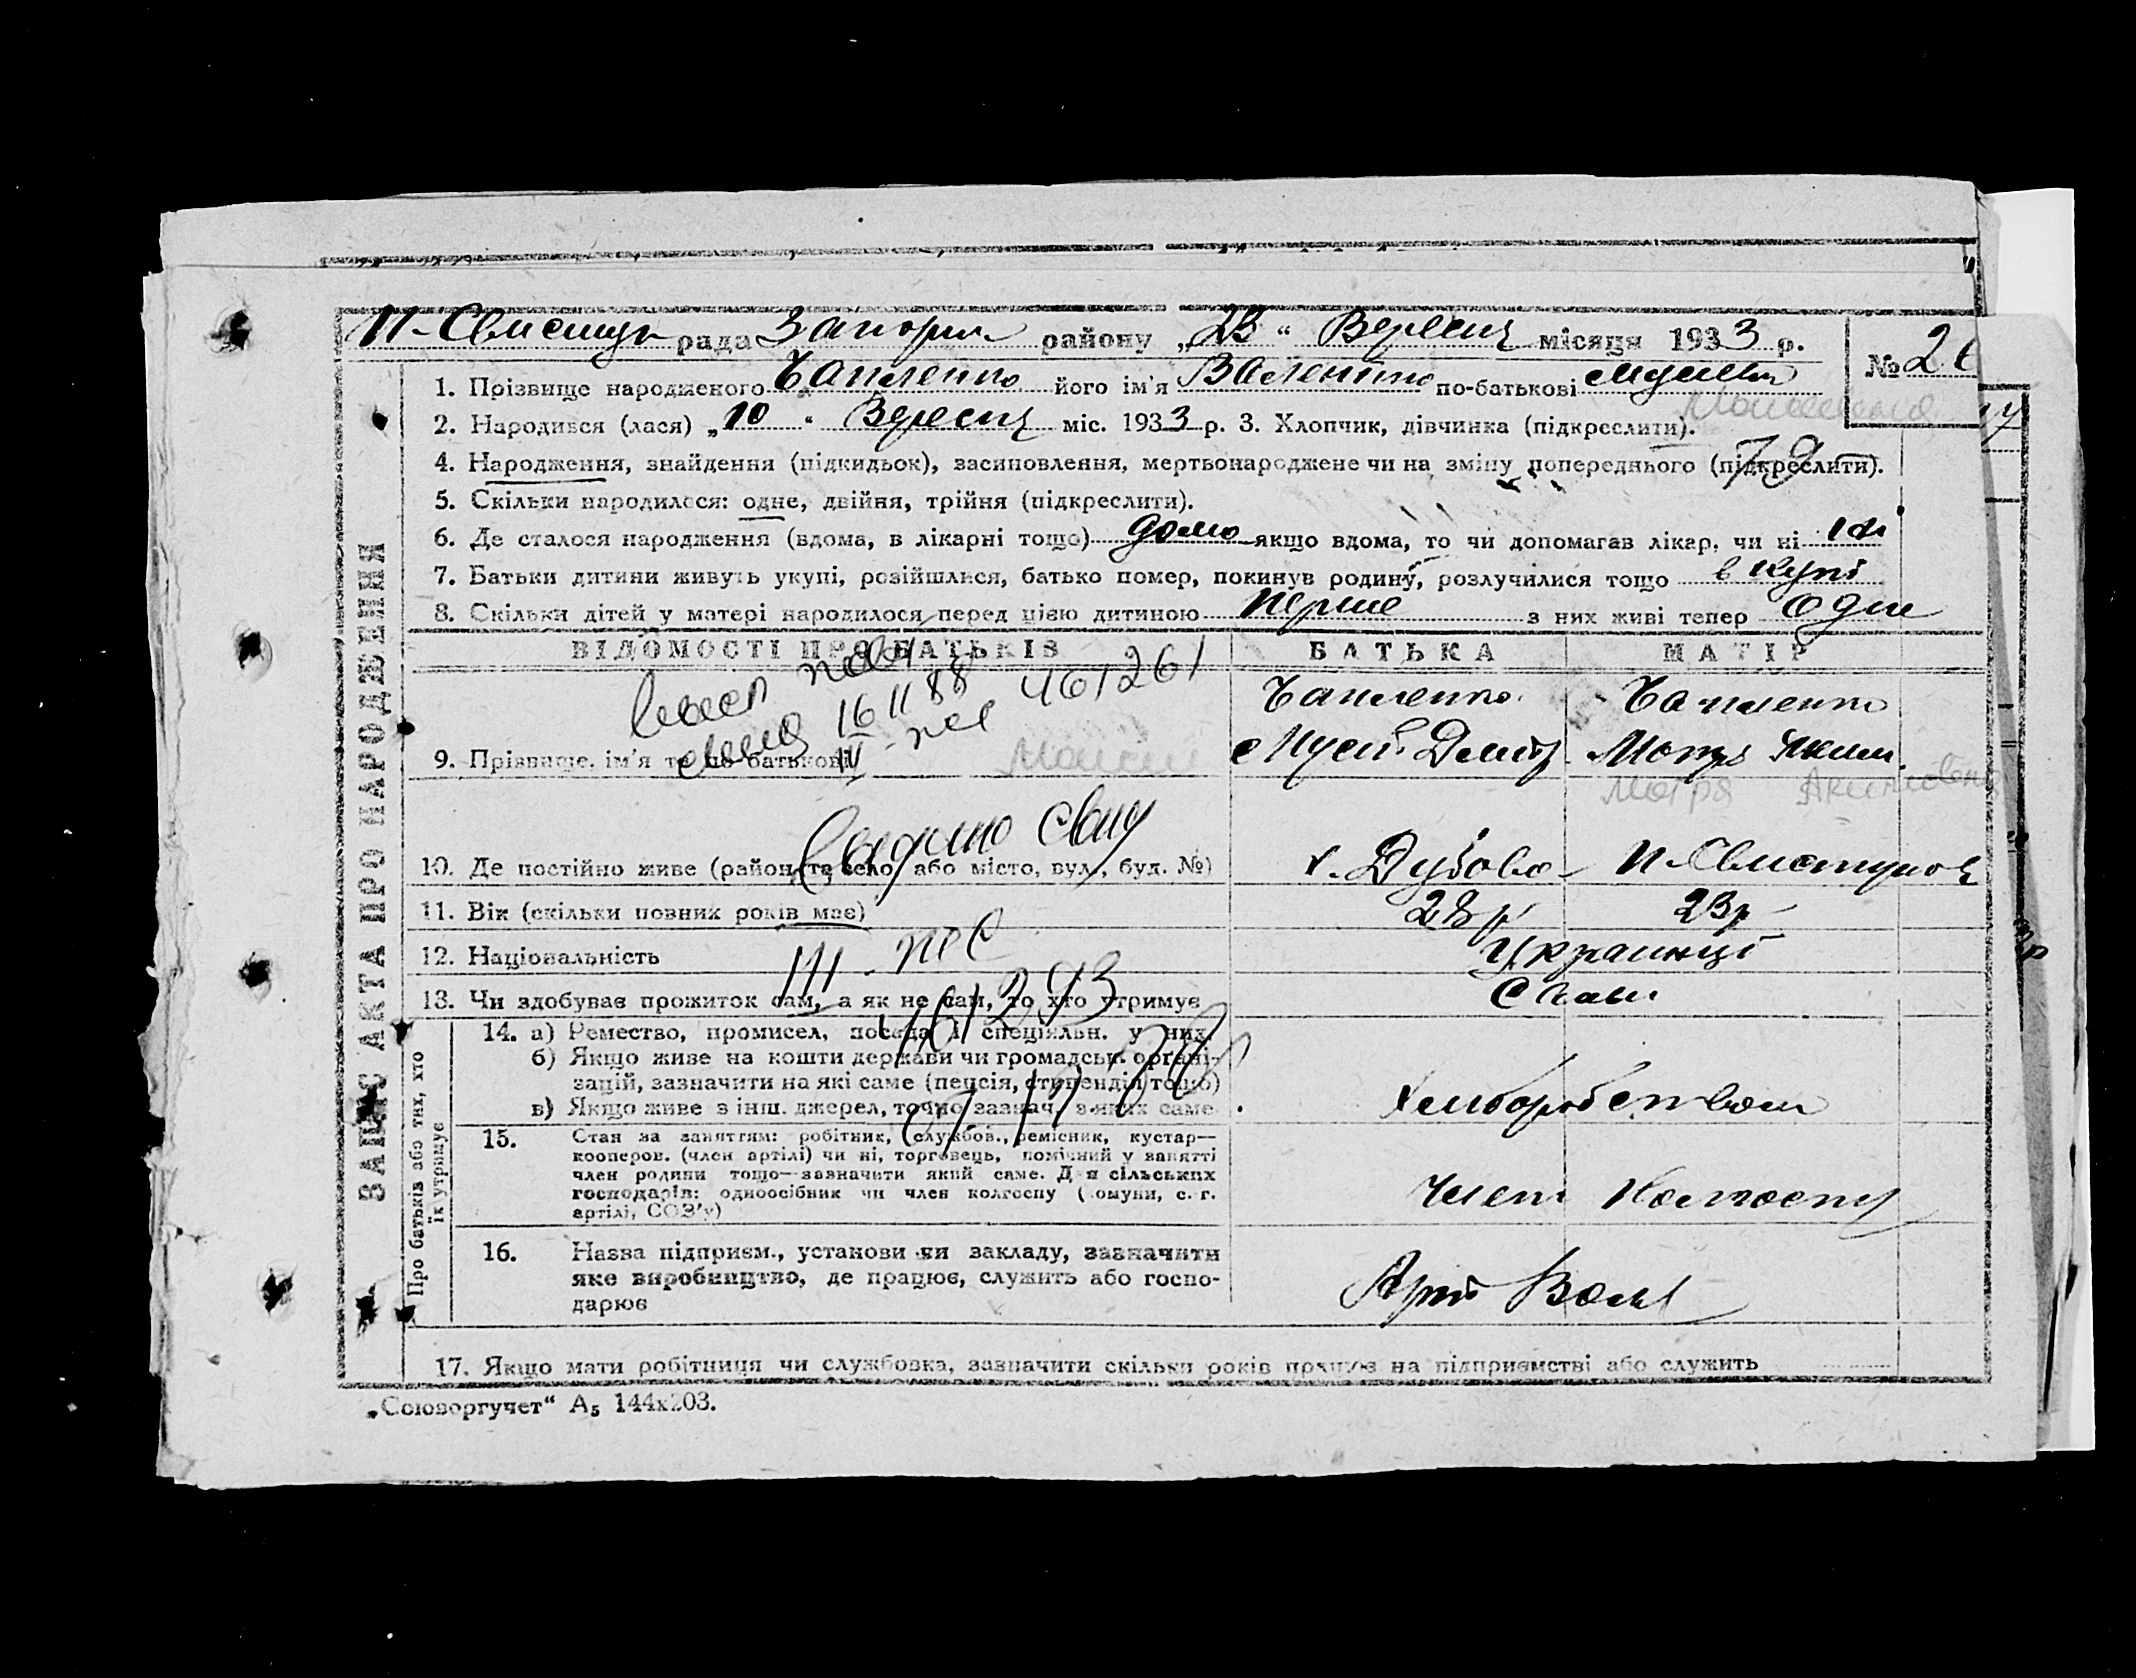 Н-Свистун рада Запориз району „23“ Вересня місяця 1933 р.
№ 2
1. Прізвище народженого Чапленко його ім'я Валентина по-батькові Мусієвн
2. Народився (лася) „10“ Вересня міс. 1933 р. 3. Хлопчик, дівчинка (підкреслити).
79
4. Народження, знайдення (підкидьок), засиповлення, мертвонароджене чи на зміну попереднього (підкреслити).
5. Скільки народилося: одне, двійня, трійня (підкреслити).
6. Де сталося народження (вдома, в лікарні тощо) дома якщо вдома, то чи допомагав лікар, чи ні
7. Батьки дитини живуть укупі, розійшлися, батько помер, покинув родину, розлучилися тощо в купі
8. Скільки дітей у матері народилося перед цією дитиною перше з них живі тепер одне
ЗАПИС АКТА ПРО НАРОДЖЕННЯ
ВІДОМОСТІ ПРО БАТЬКІВ БАТЬКА МАТІР
16 11 88 461261
Чапленко Чапленко
9. Прізвище, ім'я та по-батькові Мусій Дмитр Мотря Яким.
Мотря Акимовна
10. Де постійно живе (район та село або місто, вул., буд. №) х. Дубово Н-Свистунов
11. Вік (скільки повних років має) 28 р 23 р
12. Національність Українці
13. Чи здобуває прожиток сам, а як не сам, то хто утримує Сами
461293
Про батьків або тих, хто їх утримує
14. а) Ремество, промисел, посада і спеціяльн. у них
б) Якщо живе на кошти держави чи громадськ. органі-
зацій, зазначити на які саме (пенсія, стипендія тощо)
в) Якщо живе з інш. джерел, точно зазнач. з яких саме Хліборобством
15. Стан за заняттям: робітник, службов., ремісник, кустар—
кооперов. (член артілі) чи ні, торговець, помічний у занятті
член родини тощо—зазначити який саме. Для сільських
господарів: одноосібник чи член колгоспу (комуни, с.-г.
артілі, СОЗ'у) Член Колгоспу
16. Назва підприєм., установи чи закладу, зазначити
яке виробництво, де працює, служить або госпо-
дарює Арті Воля
17. Якщо мати робітниця чи службовка, зазначити скільки років працює на підприємстві або служить
„Союзоргучет“ А5 144х203.